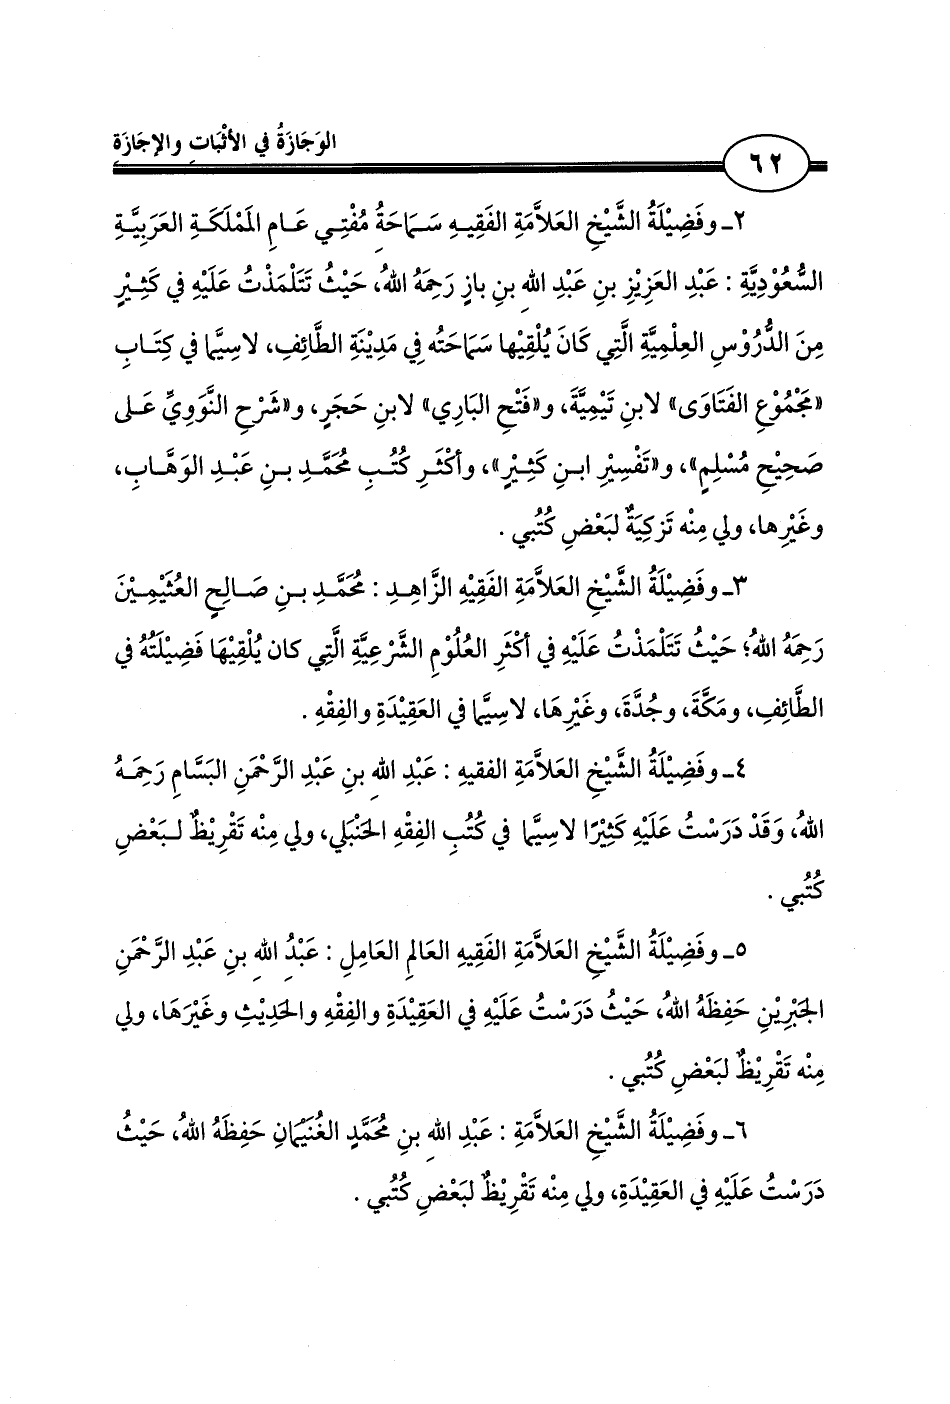 الوَجَازَةُ في الأثْبَاتِ والإجَازَةِ
٦٢
٢ـ وفَضِيْلَةُ الشَّيْخِ العَلاَّمَةِ الفَقِيـهِ سَمَاحَةُ مُفْتِـي عَـامِ المَمْلَكَـةِ العَرَبِيَّـةِ
السُّعُوْدِيَّةِ : عَبْدِ العَزِيْزِ بنِ عَبْدِ الله بنِ بازٍ رَحِمَهُ اللهُ، حَيْثُ تَتَلْمَذْتُ عَلَيْهِ في كَثِيْرٍ
مِنَ الدُّرُوْسِ العِلْمِيَّةِ الَّتِي كَانَ يُلْقِيْها سَمَاحَتُه فِي مَدِيْنَةِ الطَّائِفِ، لاسِيَّما في كِتَـابِ
«مَجْمُوْعِ الفَتَاوَى» لابنِ تَيْمِيَّةَ، و«فَتْحِ البَارِي» لابنِ حَجَرٍ، و«شَرْحِ النَّوَوِيِّ عَـلى
صَحِيْحِ مُسْلِمٍ»، و«تَفْسِيْرِ ابـنِ كَثِيْرٍ»، وأكْثَرِ كُتُـبِ مُحَمَّـدِ بـنِ عَبْـدِ الوَهَّـابِ،
وغَيْرِها، ولي مِنْه تَزكِيَةٌ لبَعْضِ كُتُبي .
٣ـ وفَضِيْلَةُ الشَّيْخِ العَلاَّمَةِ الفَقِيْهِ الزَّاهِـدِ : مُحَمَّـدِ بـنِ صَـالِحِ العُثَيْمِـيْنَ
رَحِمَهُ اللهُ؛ حَيْثُ تَتَلْمَذْتُ عَلَيْهِ في أكْثَرِ العُلُوْمِ الشَّرْعِيَّةِ الَّتِي كان يُلْقِيْهَا فَضِيْلَتُهُ في
الطَّائِفِ، ومَكَّةَ، وجُدَّةَ، وغَيْرِهَا، لاسِيَّما في العَقِيْدَةِ والفِقْهِ .
٤ـ وفَضِيْلَةُ الشَّيْخِ العَلاَّمَةِ الفقيهِ : عَبْدِ الله بنِ عَبْدِ الرَّحْمَنِ البَسَّامِ رَحِمَـهُ
اللهُ، وَقَدْ دَرَسْتُ عَلَيْهِ كَثِيْرًا لاسِيَّما في كُتُبِ الفِقْهِ الحَنْبَلي، ولي مِنْه تَقْرِيْظٌ لـبَعْضِ
كُتُبي .
٥ـ وفَضِيْلَةُ الشَّيْخِ العَلاَّمَةِ الفَقِيهِ العَالمِ العَامِلِ : عَبْدُ الله بنِ عَبْدِ الرَّحْمَنِ
الجَبْرِيْنِ حَفِظَهُ اللهُ، حَيْثُ دَرَسْتُ عَلَيْهِ في العَقِيْدَةِ والفِقْهِ والحَدِيْثِ وغَيْرَهَا، ولي
مِنْه تَقْرِيْظٌ لبَعْضِ كُتُبي .
٦ـ وفَضِيْلَةُ الشَّيْخِ العَلاَّمَةِ : عَبْدِ الله بنِ مُحَمَّدٍ الغُنَيْمَانِ حَفِظَهُ اللهُ، حَيْثُ
دَرَسْتُ عَلَيْهِ في العَقِيْدَةِ، ولي مِنْه تَقْرِيْظٌ لبَعْضِ كُتُبي .